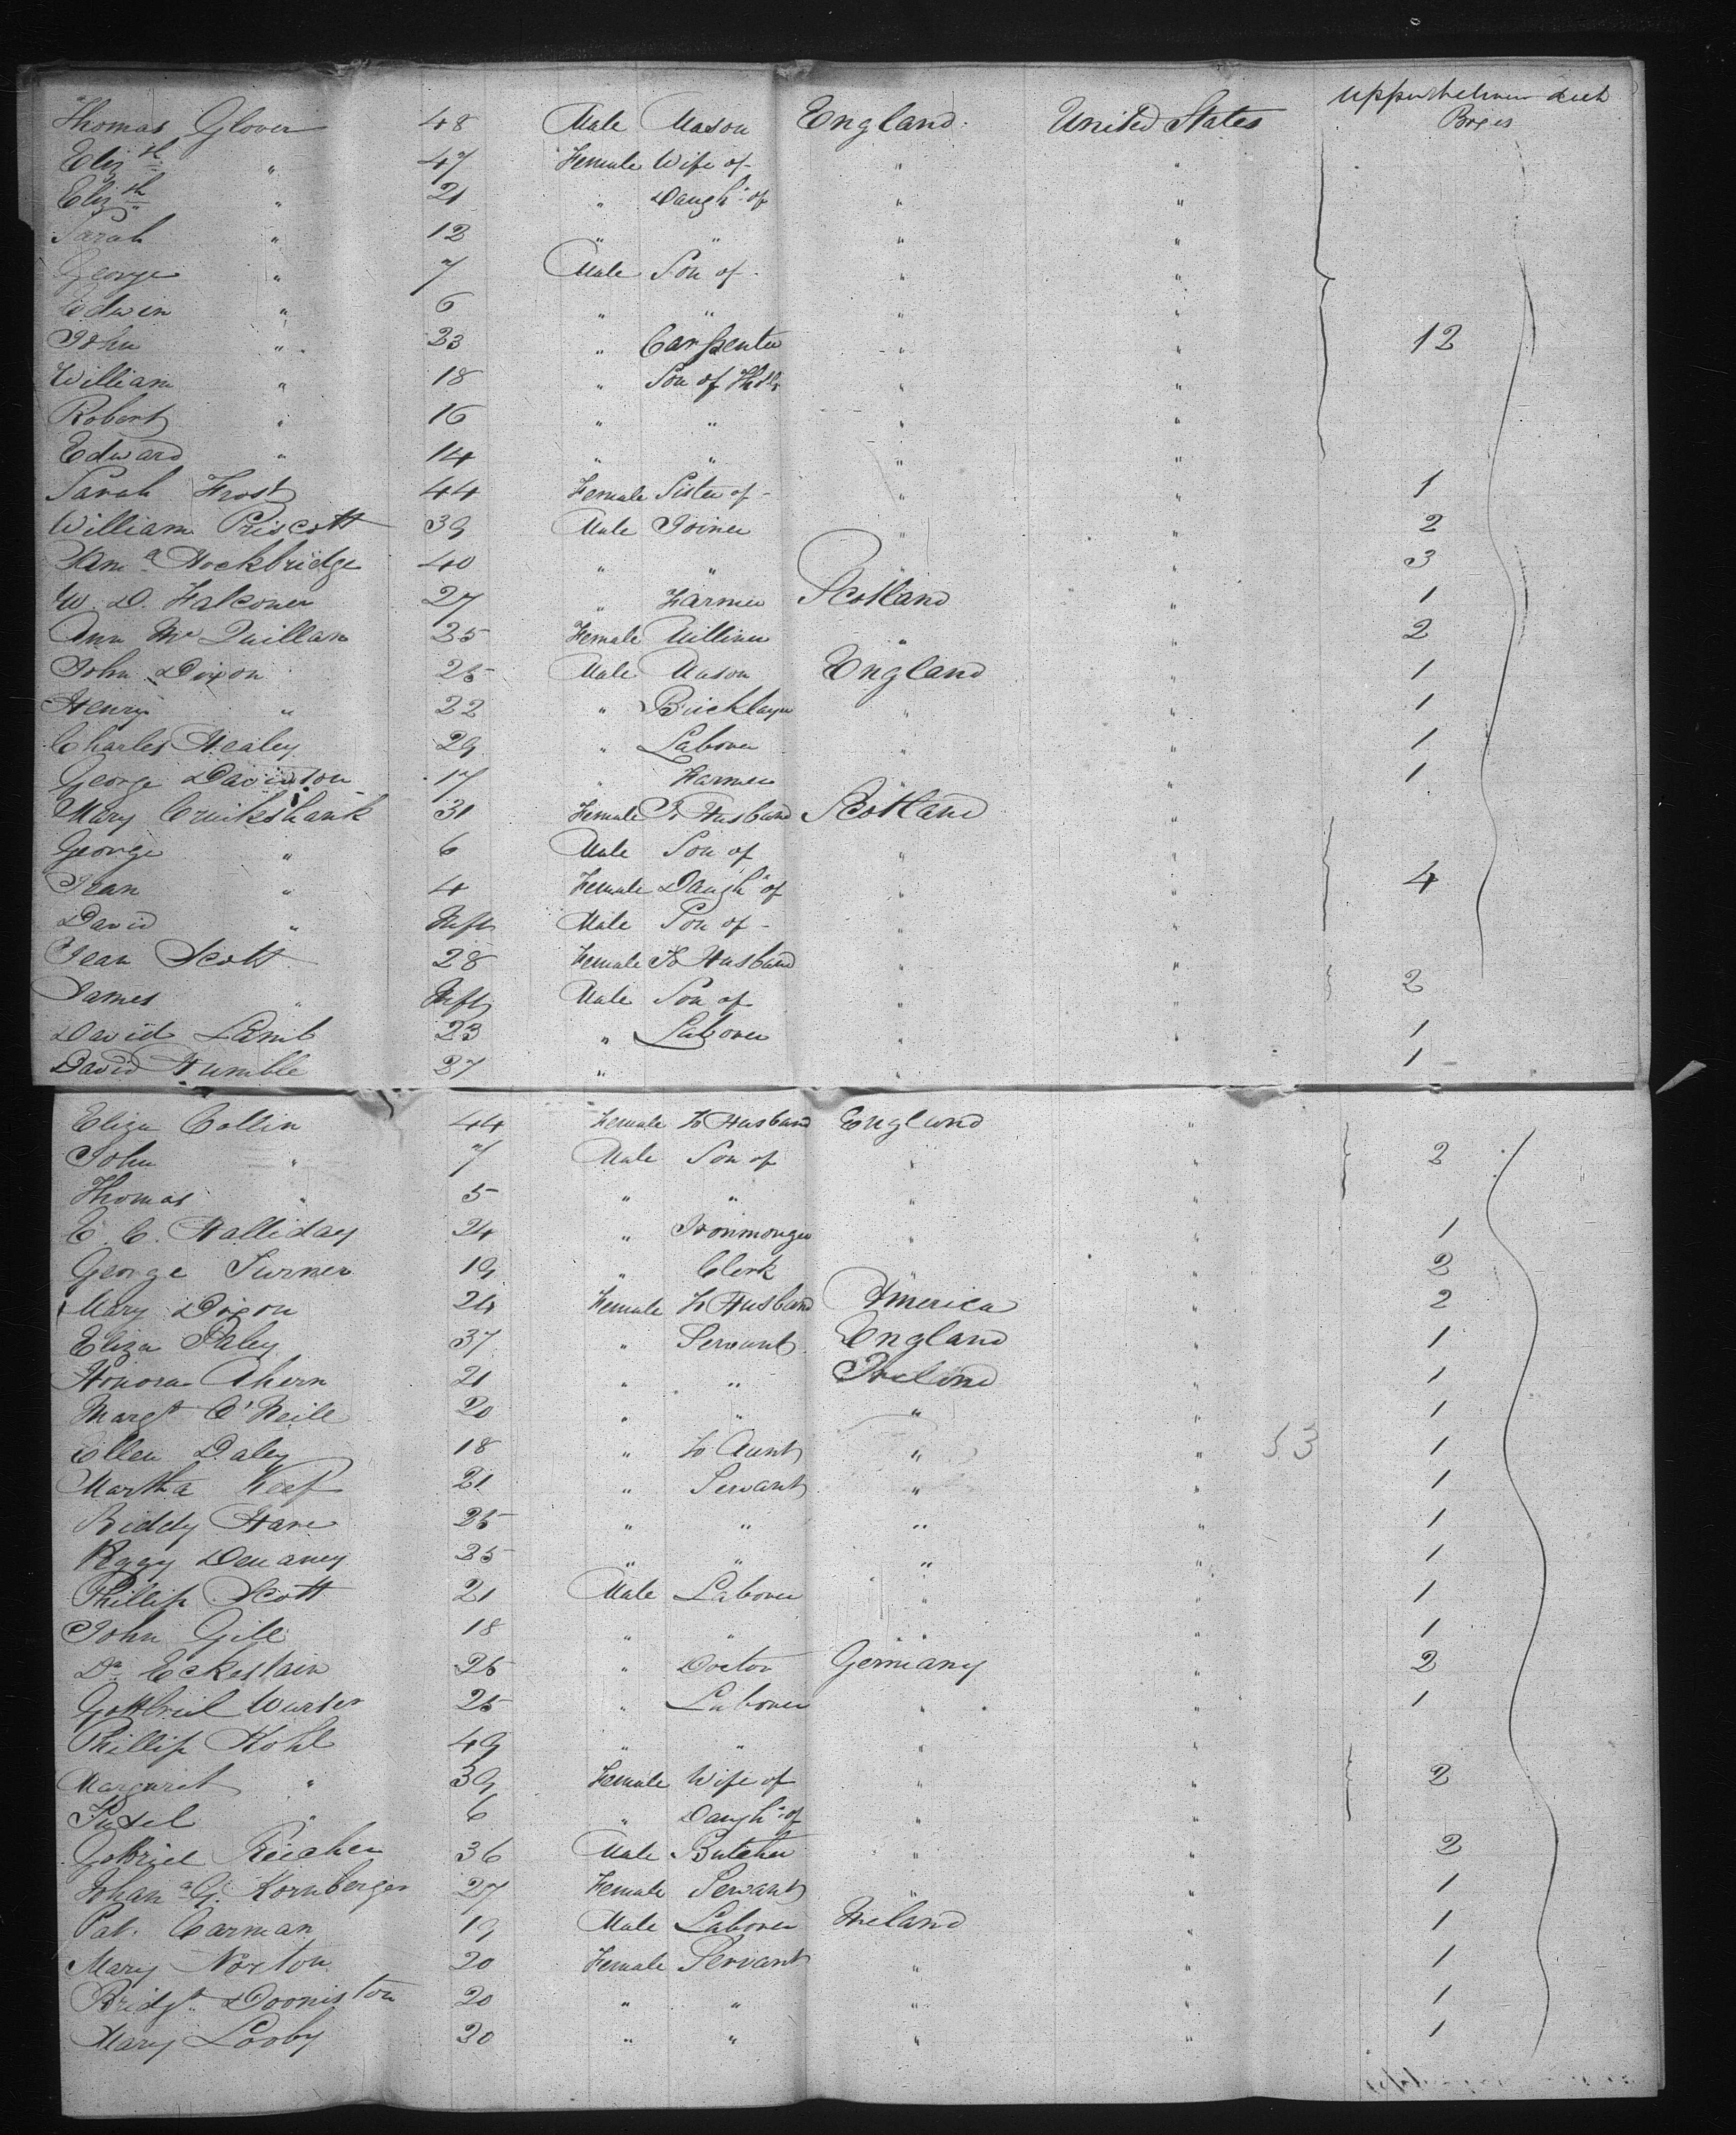 Upper between deck
Thomas Glover 48 Male Mason England United States Boxes
Eliz th " 47 Female Wife of - " "
Eliz th " 21 " Daugh r of " "
Sarah " 12 " " " "
George " 7 Male Son of - " "
Edwin " 6 " " " "
John " 23 " Carpenter " " 12
William " 18 " Son of Thos " "
Robert " 16 " " " "
Edward " 14 " " " "
Sarah Frost 44 Female Sister of - " " 1
William Priscott 39 Male Joiner " " 2
40 " " " " 3
W. D. Falconer 27 " Farmer Scotland " 1
Ann Mc Quillan 25 Female Milliner " " 2
John Dixon 25 Male Mason England " 1
Henry " 22 " Bricklayer " " 1
Charles Healey 29 " Laborer " " 1
George Davidson 17 " Farmer " " 1
Mary Cruikshank 31 Female To Husband Scotland "
George " 6 Male Son of " "
Jean " 4 Female Daugh r of " " 4
David " Inft Male Son of - " "
Jean Scott 28 Female To Husband " "
James " Inft Male Son of " " 2
David Lamb 23 " Laborer " " 1
David Humble 27 " " " 1
Eliza Collin 44 Female To Husband England "
John " 7 Male Son of " " 2
Thomas " 5 " " " "
E. C. Halliday 24 " Ironmonger " " 1
George Turner 19 " Clerk " " 2
Mary Dixon 24 Female To Husband America " 2
Eliza Paley 37 " Servant England " 1
Honora Ahern 21 " " Ireland " 1
Margt O'Neile 20 " " " " 1
Ellen Daley 18 " To Aunt " " 53 1
Martha Keef 21 " Servant " " 1
Biddy Hare 25 " " " " 1
Peggy 25 " " " " 1
Phillip Scott 21 Male Laborer " " 1
John Gill 18 " " " " 1
Dr Eckestain 26 " Doctor Germany " 2
25 " Laborer " " 1
Phillip Kohl 49 " " " "
Margaret " 39 Female Wife of " " 2
" 6 " Daugh r of " "
Reicher 36 Male Butcher " " 2
Johan a G. Kornberger 27 Female Servant " " 1
Pat. Carman 19 Male Laborer Ireland " 1
Mary Norton 20 Female Servant " " 1
Bridgt Dooniston 20 " " " " 1
Mary Looby 20 " " " " 1